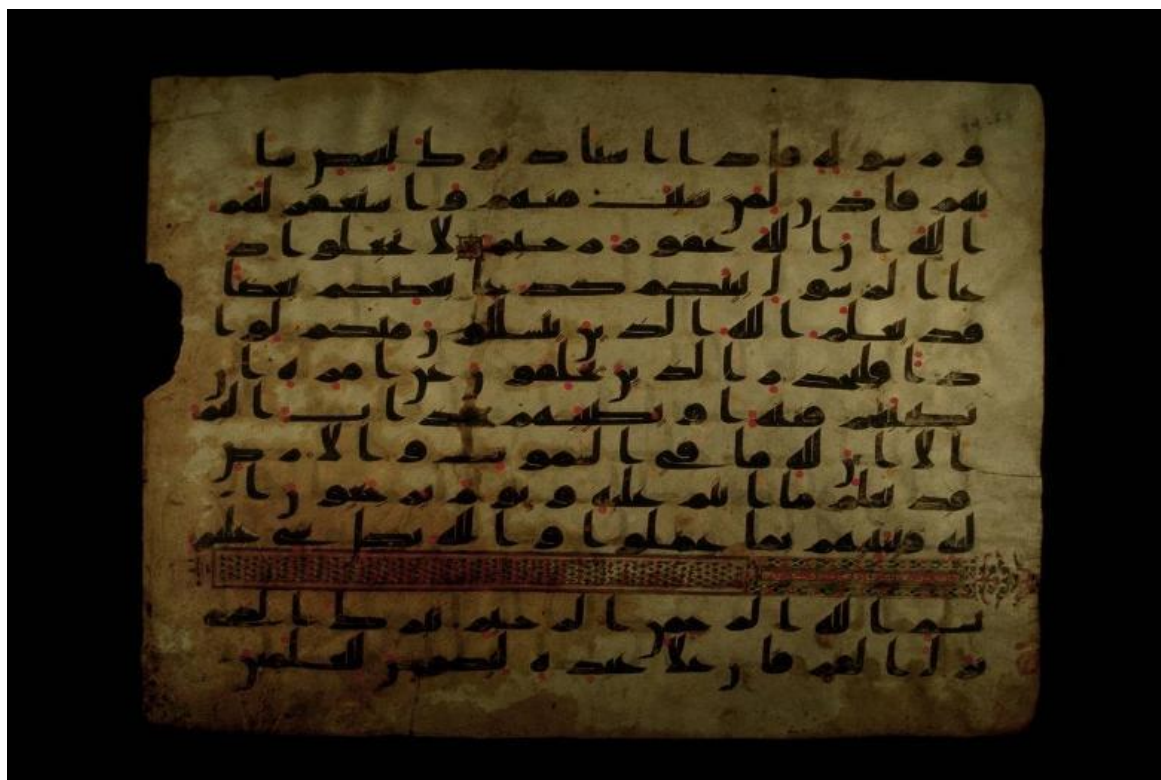 ورسوله فاذا استاذنوك لبعض شا
نهم فاذن لمن شئت منهم واستغفر لهم
الله ان الله غفور رحيم لا تجعلوا د
عا الرسول بينكم كدعا بعضكم بعضا
قد يعلم الله الذين يتسللون منكم لوا
ذا فليحذر الذين يخلفون عن امره ان
تصيبهم فتنه او يصيبهم عذاب اليم
الا ان لله ما في السموت والارض
قد يعلم ما انتم عليه ويوم يرجعون ا
ليه فينبئهم بما عملوا والله بكل شي عليم
بسم الله الرحمن الرحيم تبرك الذي
نزل الفرقان على عبده ليكون للعلمين